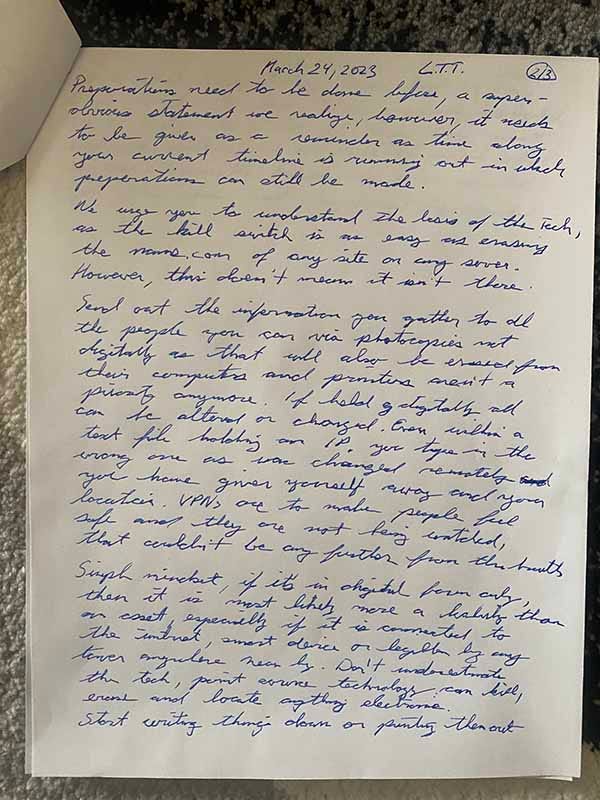 March 24, 2023 L.T.T. 2/3
Preparations need to be done before, a super-
obvious statement we realize, however, it needs
to be given as a reminder as time along
your current timeline is running out in which
preparations can still be made.
We urge you to understand the basis of the Tech,
as the kill switch is as easy as erasing
the name.com of any site on any server.
However, this doesn't mean it isn't there.
Send out the information you gather to all
the people you can via photocopies not
digitally as that will also be erased from
their computers and printers aren't a
priority anymore. If held digitally all
can be altered or changed. Even within a
text file holding an IP, you type in the
wrong one as was changed remotely and
you have given yourself away and your
location. VPNs are to make people feel
safe and they are not being watched,
that couldn't be any further from the truth
Simple mindset, if it's in digital form only,
then it is most likely more a liability than
an asset, especially if it is connected to
the internet, smart device or by any
tower anywhere near by. Don't underestimate
the tech, point source technology can kill,
erase and locate anything electronic.
Start writing things down or printing them out